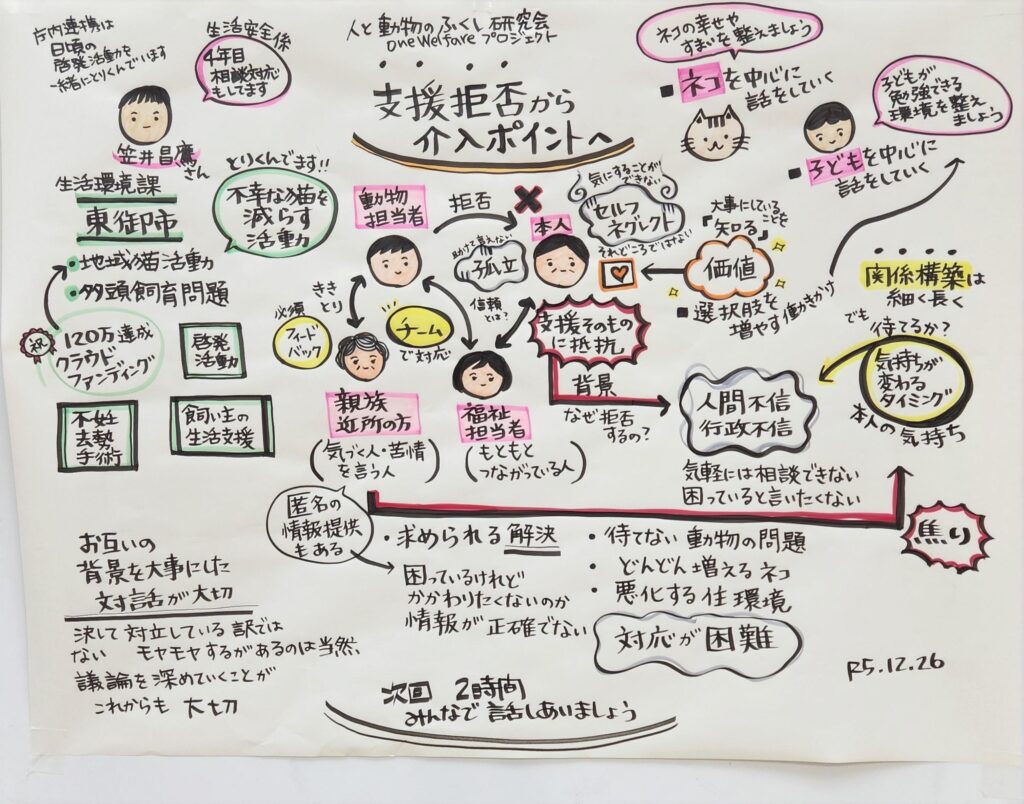 庁内連携は
日頃の
啓発活動を
一緒にとりくんでいます
生活安全係
4年目
相談対応
もしてます
笠井昌鷹さん
生活環境課
東御市
・地域猫活動
・多頭飼育問題
とりくんでます!!
不幸な猫を
減らす
活動
祝
120万達成
クラウド
ファンディング
啓発
活動
不妊
去勢
手術
飼い主の
生活支援
人と動物のふくし研究会
oneWelfareプロジェクト
支援拒否から
介入ポイントへ
動物
担当者
拒否
本人
気にすることが
できない
セルフ
ネグレクト
それどころではない
助けて言えない
孤立
信頼
とは?
ききとり
必須
フィード
バック
チーム
で対応
親族
近所の方
(気づく人・苦情
を言う人)
福祉
担当者
(もともと
つながっている人)
支援そのもの
に抵抗
背景
なぜ拒否
するの?
人間不信
行政不信
気軽には相談できない
困っていると言いたくない
ネコの幸せや
すまいを整えましょう
■ネコを中心に
話をしていく
子どもが
勉強できる
環境を整え
ましょう
■子どもを中心に
話をしていく
大事にしていることを
「知る」
価値
■選択肢を
増やす働きかけ
関係構築は
細く長く
でも 待てるか?
気持ちが
変わる
タイミング
本人の気持ち
焦り
匿名の
情報提供
もある
・求められる解決
困っているけれど
かかわりたくないのか
情報が正確でない
・待てない動物の問題
・どんどん増えるネコ
・悪化する住環境
対応が困難
お互いの
背景を大事にした
対話が大切
決して対立している訳では
ない モヤモヤするがあるのは当然、
議論を深めていくことが
これからも大切
次回 2時間
みんなで話しあいましょう
R5.12.26